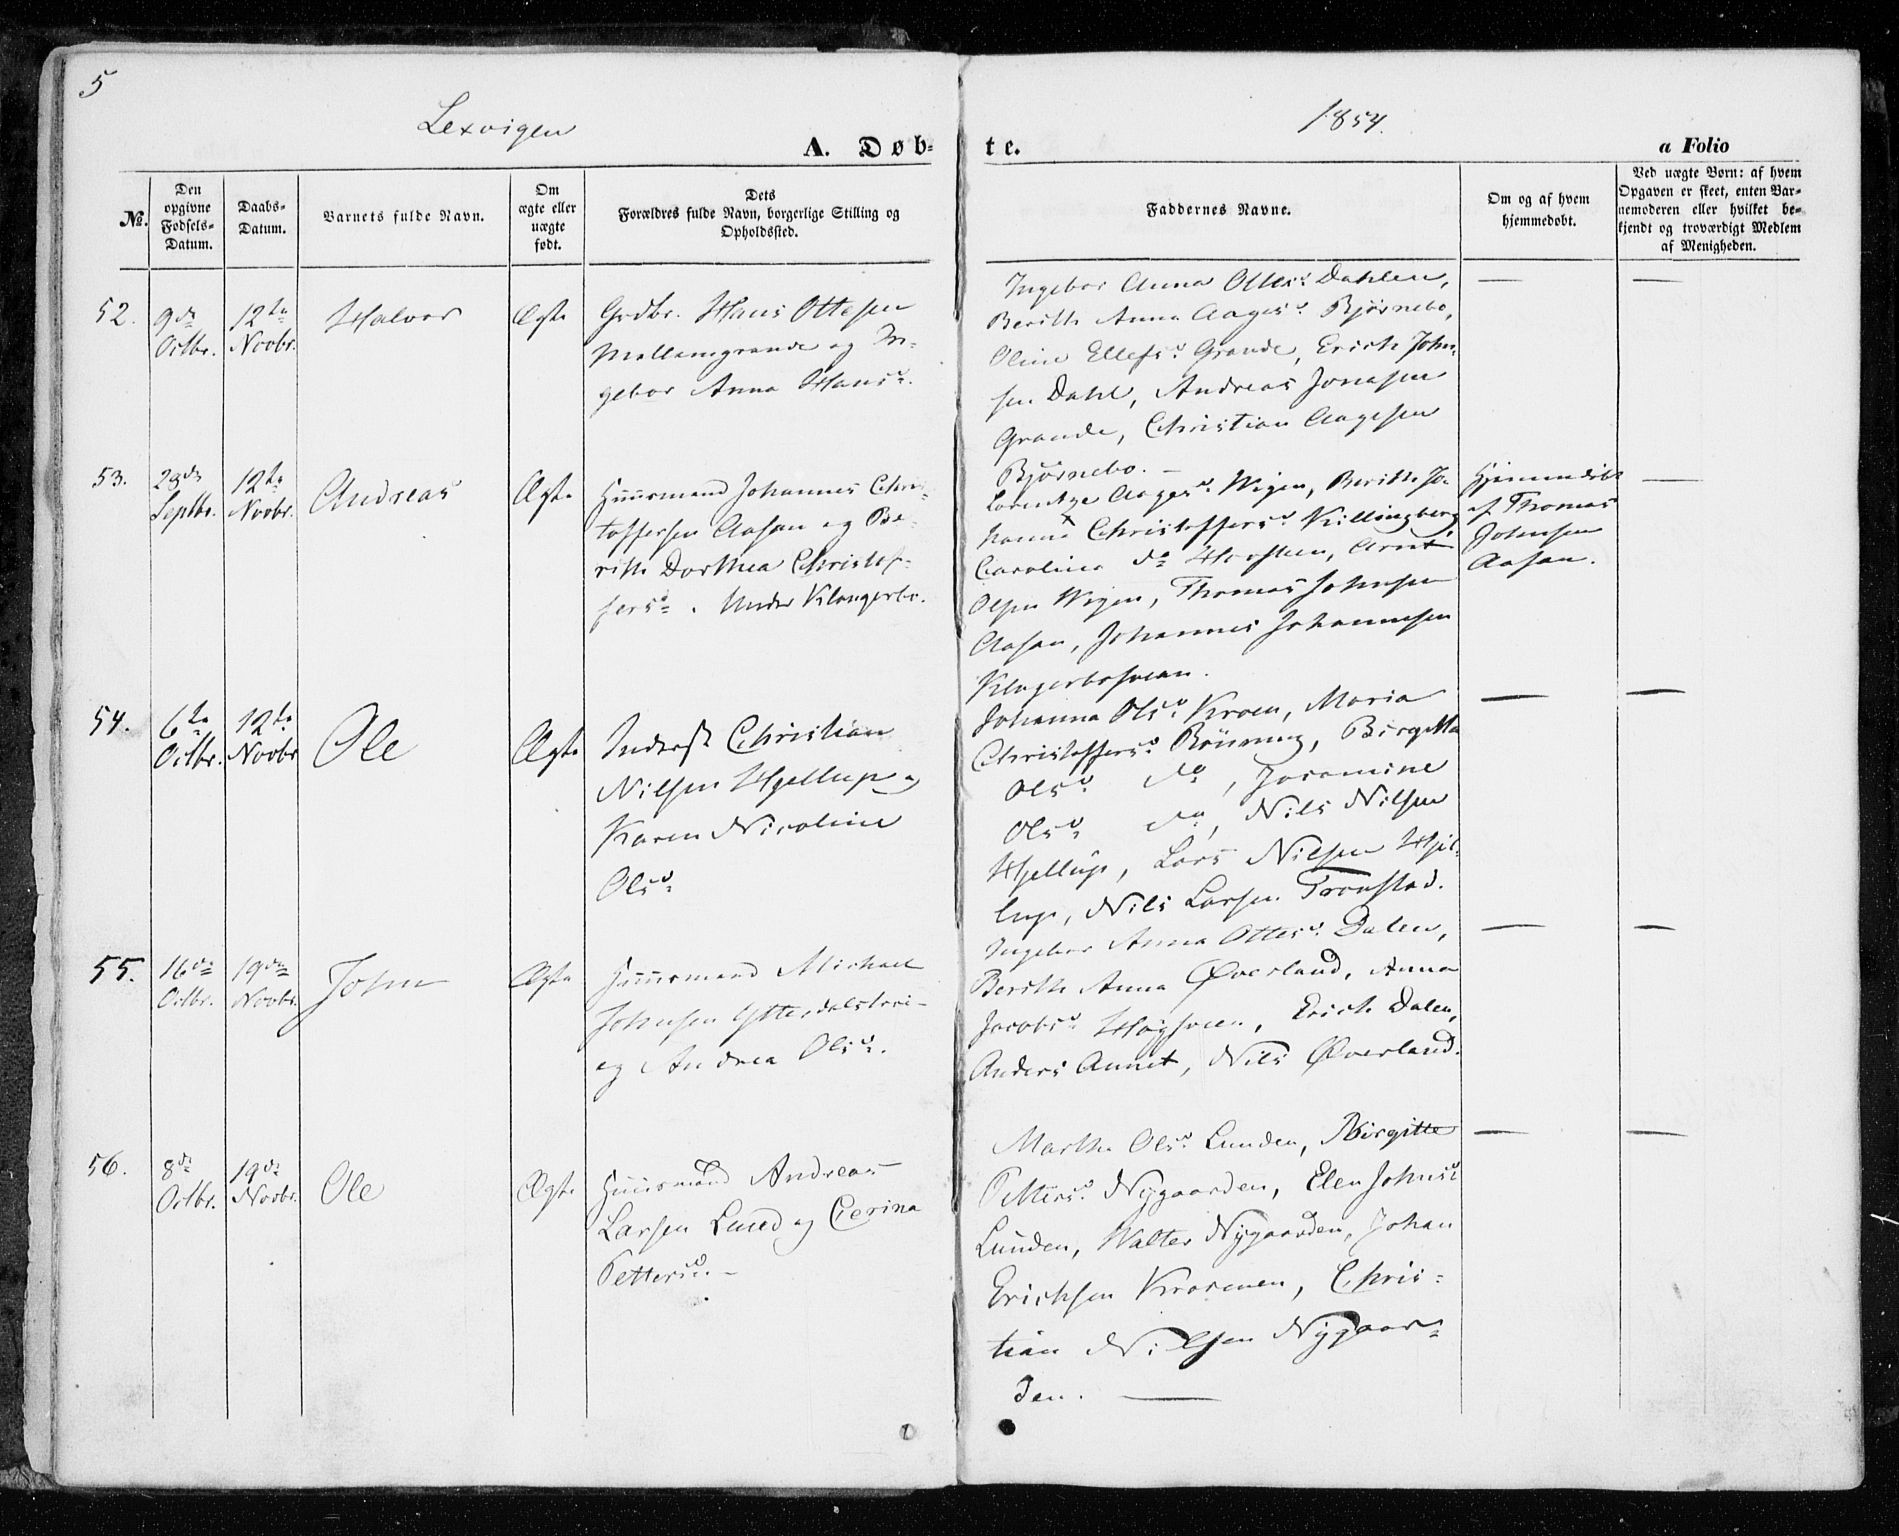 5
Lexvigen
1854.
A. Døb-
te.
a Folio
No.
Den
opgivne
Fødsels-
Datum.
Daabs-
Datum.
Barnets fulde Navn.
Om
ægte eller
uægte
født.
Dets
Forældres fulde Navn, borgerlige Stilling og
Opholdssted.
Faddernes Navne.
Om og af hvem
hjemmedøbt.
Ved uægte Børn: af hvem
Opgaven er skeet, enten Bar-
nemoderen eller hvilket be-
kjendt og troværdigt Medlem
af Menigheden.
52.
9de
Octbr.
12te
Novbr.
Halvor
Ægte
Grdbr. Hans Ottesen
Mellemgrande og In-
gebor Anna Hansd.
Ingebor Anna Ottesd. Dahlen,
Berith Anna Aagesd. Bjørnebo,
Oline Ellefsd. Grande, Erich John-
sen Dahl, Andreas Jonasen
Grande, Christian Aagesen
Bjørnebo. —
—
—
53.
28de
Septbr.
12te
Novbr.
Andreas
Ægte
Huusmand Johannes Chri-
toffersen Aasan og Be-
rith Dorthea Christof-
fersd. Under Klangerbo.
Lorentze Aagesd. Wigen, Berith Jo-
hanna Christoffersd. Killingberg
Carolina do Hershen, Arnt
Olsen Wigen, Thomas Johnsen
Aasan, Johannes Johannesen
Klagerbosvean.
Hjemmedøbt
af Thomas
Johnsen
Aasan.
—
54.
6te
Octbr.
12te
Novbr
Ole
Ægte
Inderst Christian
Nilsen Hjellup og
Karen Nicoline
Olsd.
Johanna Olsd. Kroen, Maria
Christoffersd. Rönning, Birgitta
Olsd. do, Jocomine
Olsd. do, Nils Nilsen
Hjellup, Lars Nilsen Hjel-
lup, Nils Larsen Tronstad.
—
—
55.
16de
Octbr.
19de
Novbr.
John
Ægte
Huusmand Michael
Johnsen Ytterdalstrøi-
og Andrea Olsd.
Ingebor Anna Ottesd. Dalen,
Berith Anna Øverland, Anna
Jacobsd. Høgsveen, Erich Dalen,
Anders Aunet, Nils Øverland.
—
—
56.
8de
Octbr.
19de
Novbr.
Ole
Ægte
Huusmand Andreas
Larsen Lund og Cerina
Pettersd. —
Martha Olsd. Lunden, Birgitte
Pettersd. Nygaarden, Elen Johnsd.
Lunden, Walter Nygaarden, Johan
Erichsen Kroemen, Chris-
tian Nilsen Nygaar-
den. —
—
—